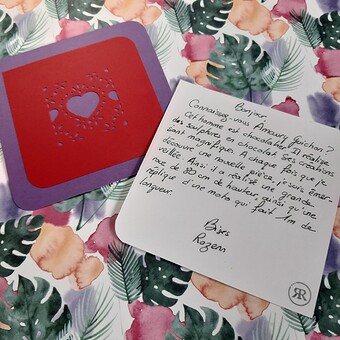 Bonjour
Connaissez-vous Amaury Guichon ?
Cet homme est chocolatier. Il réalise
des sculptures en chocolat. Ses créations
sont magnifiques. A chaque fois que je
découvre une nouvelle pièce, je suis émer-
veillée. Ainsi il a réalisé une grande
roue de 80 cm de hauteur ainsi qu'une
réplique d'une moto qui fait 1m de
longueur.
Bises
Rozenn
RR